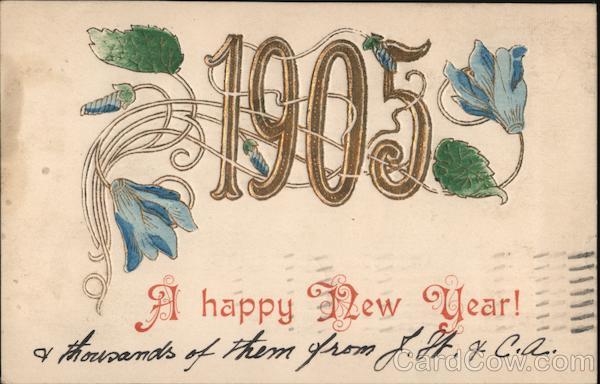 1905
A happy New Year!
& thousands of them from J. H. & C.A.
CardCow.com